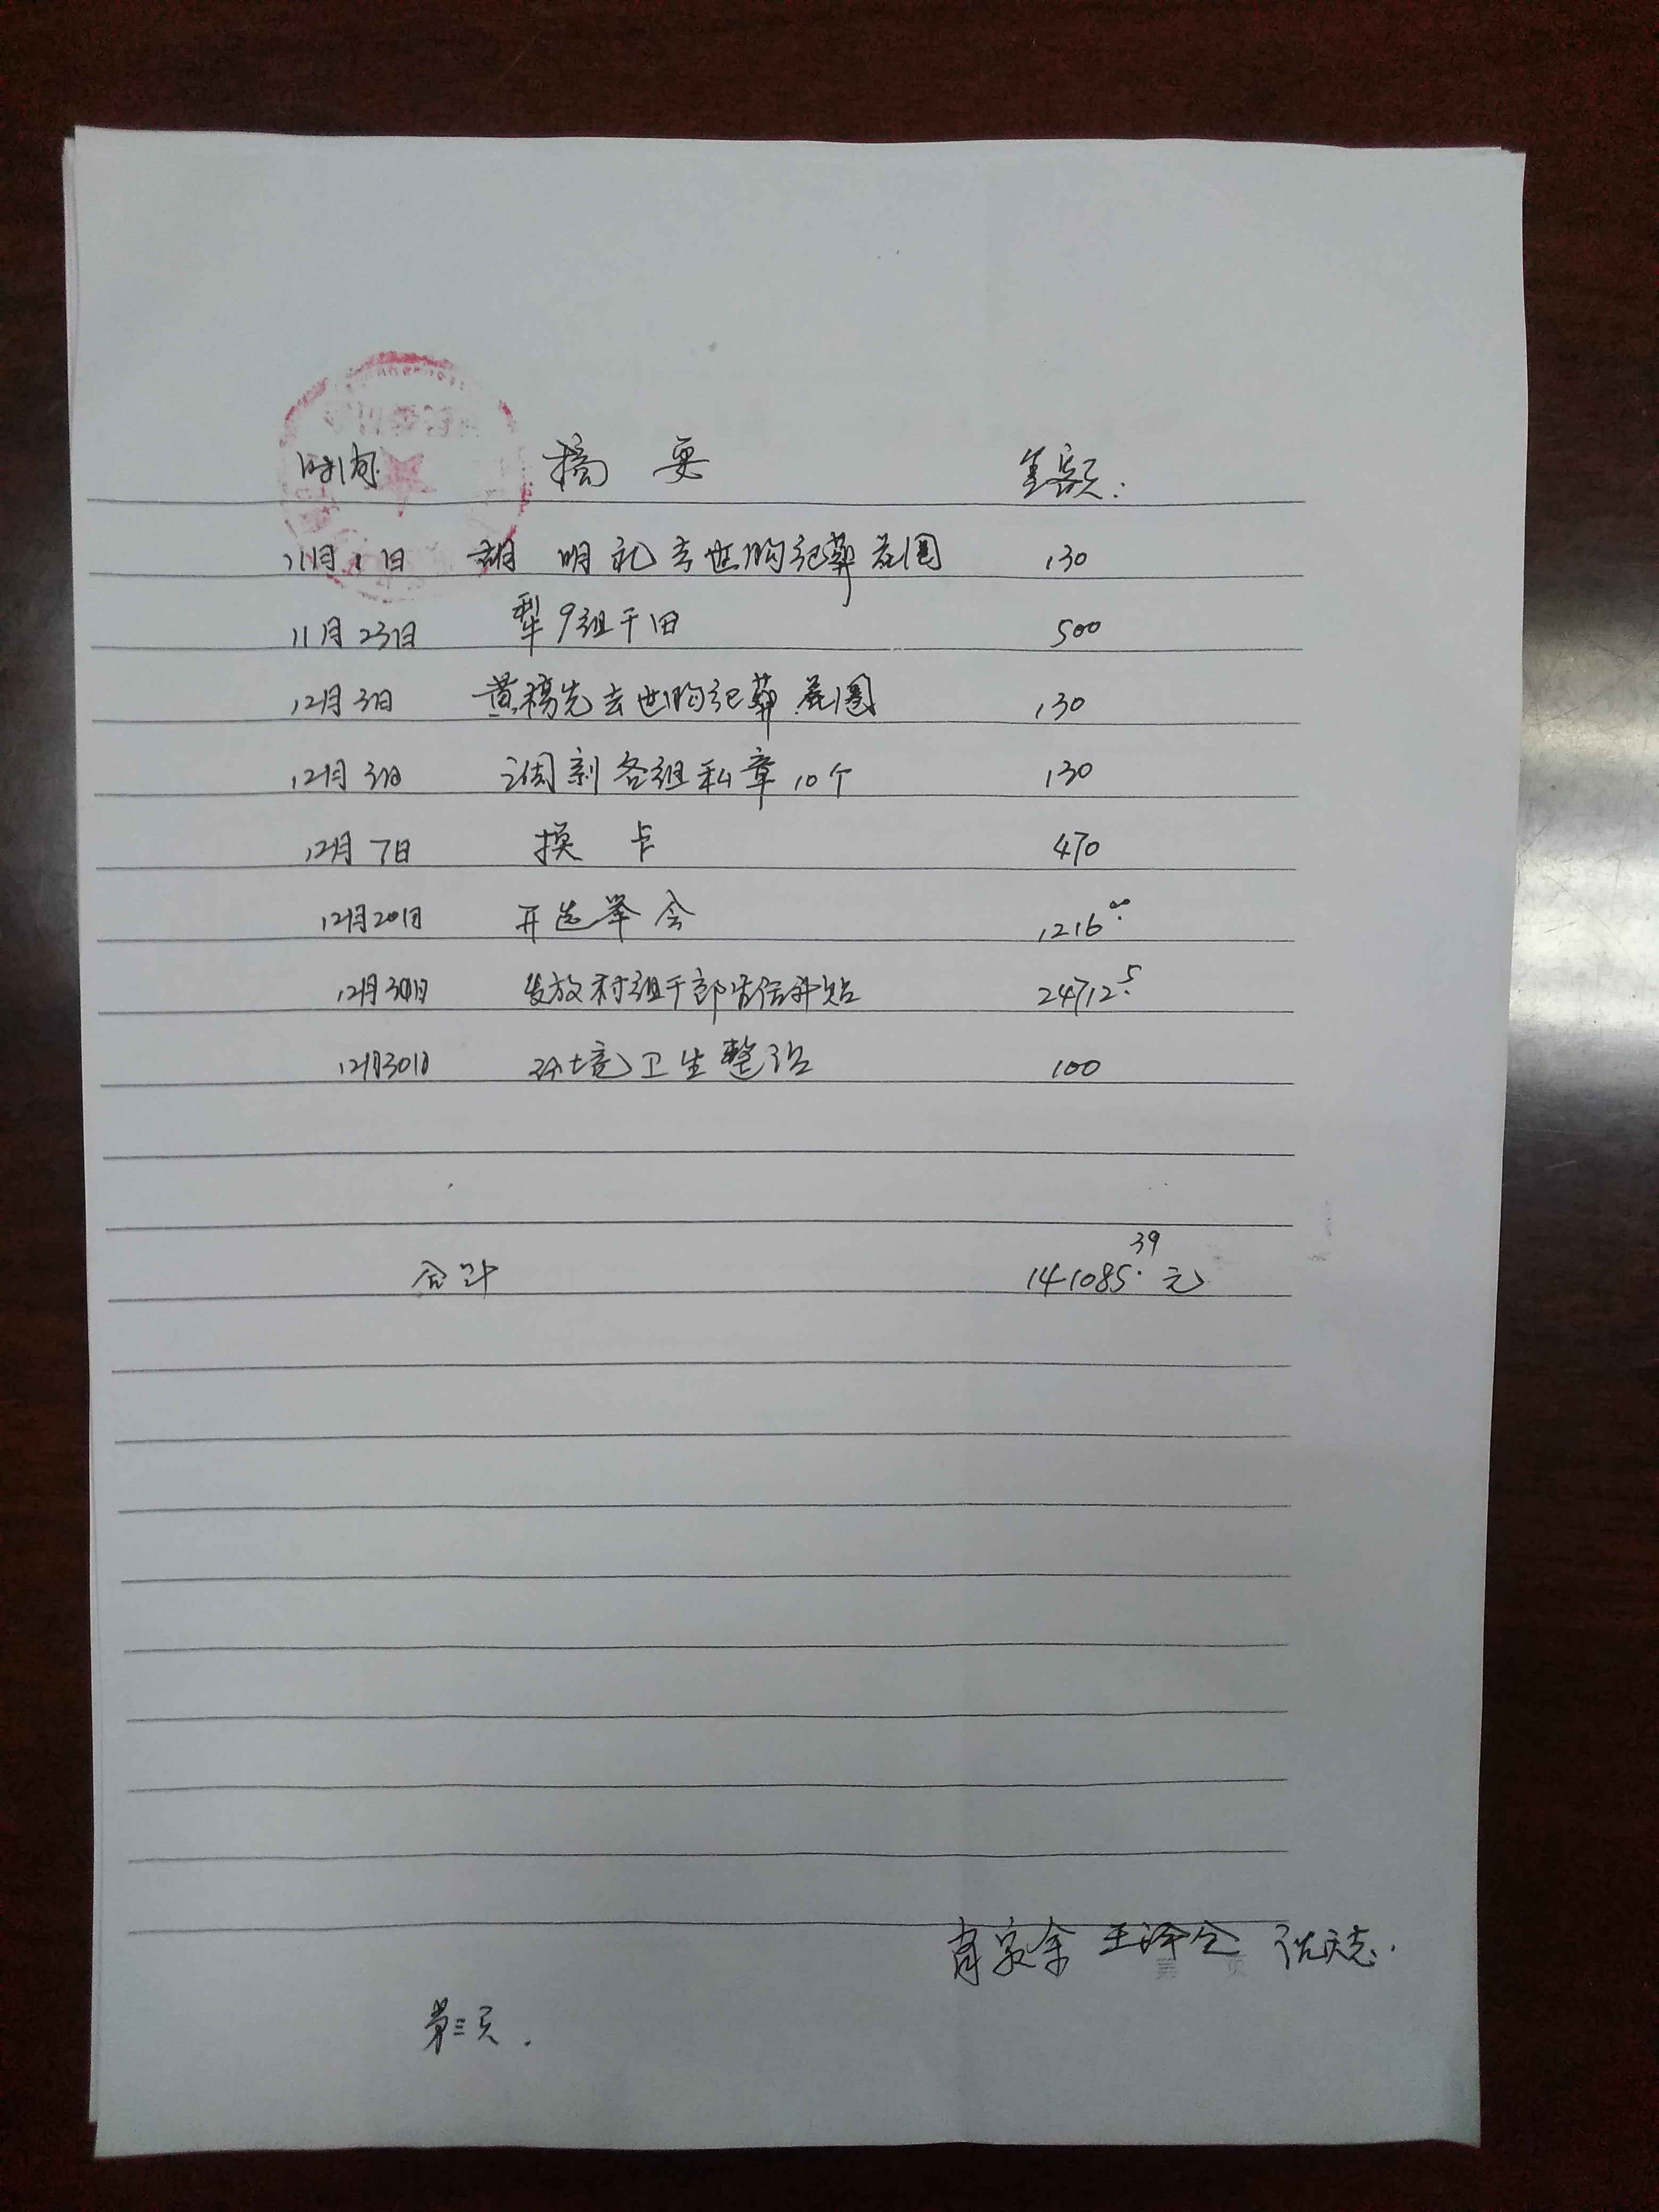 时间 摘要 金额:
11月1日 胡明礼去世购纪葬花圈 130
11月23日 犁9组干田 500
12月3日 黄 先去世购纪葬花圈 130
12月3日 调刻各组私章10个 130
12月7日 换卡 470
12月20日 开选举会 1216.00
12月30日 发放村组干部生活补贴 24712.5
12月30日 环境卫生整治 100
合计 141085.39元
肖家余 王泽全 张庆志
第 页
第三页.